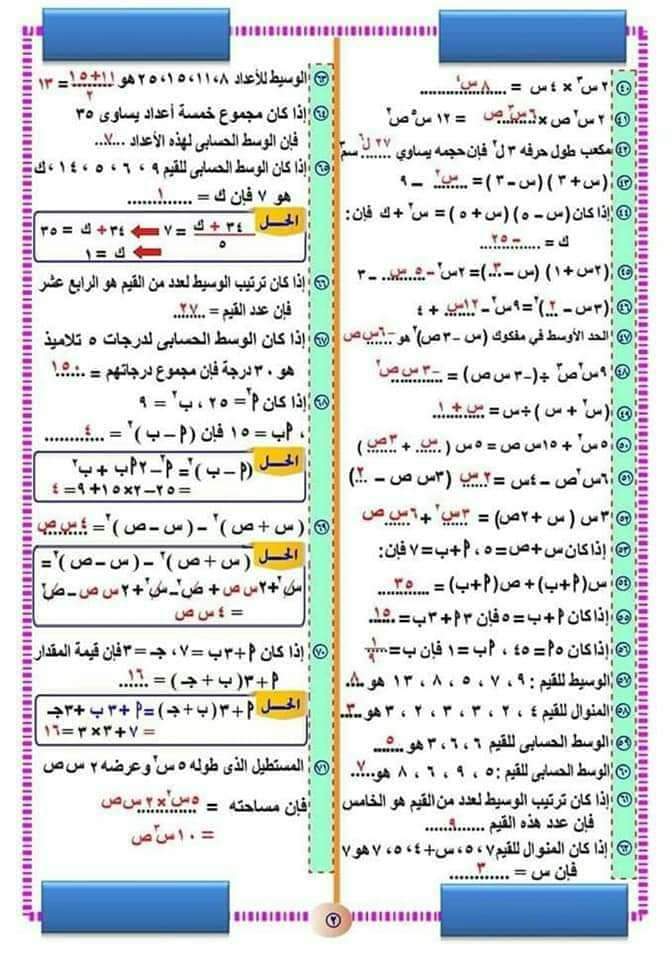 ٤٠ ٢ س٣ × ٤ س = ٨ س٤
٤١ ٢ س٢ ص × ٦س٣ ص = ١٢ س٥ ص٢
٤٢ مكعب طول حرفه ٣ ل٢ فإن حجمه يساوي ٢٧ ل٦ سم٣
٤٣ (س + ٣ ) (س – ٣ ) = س٢ – ٩
٤٤ إذا كان (س – ٥) (س + ٥) = س٢ + ك فإن:
ك = – ٢٥
٤٥ (٢س + ١) (س – ٣) = ٢س٢ – ٥ س – ٣
٤٦ (٣س – ٢)٢ = ٩س٢ – ١٢س + ٤
٤٧ الحد الأوسط في مفكوك (س – ٣ ص)٢ هو –٦س ص
٤٨ ٩س٢ص٣ ÷ (–٣ س ص) = –٣ س ص٢
٤٩ (س٢ + س ) ÷ س = س + ١
٥٠ ٥س٢ + ١٥س ص = ٥ س ( س + ٣ص )
٥١ ٦س٢ص – ٤س = ٢ س (٣س ص – ٢)
٥٢ ٣س ( س + ٢ص) = ٣س٢ + ٦س ص
٥٣ إذا كان س+ص= ٥ ، أ+ب= ٧ فإن:
٥٤ س(أ+ب) + ص(أ+ب) = ٣٥
٥٥ إذا كان أ+ب = ٥ فإن ٣أ+٣ب = ١٥
٥٦ إذا كان ٥أ = ٤٥ ، أب = ١ فإن ب = ١/٩
٥٧ الوسيط للقيم : ٩ ، ٧ ، ٥ ، ٨ ، ١٣ هو ٨
٥٨ المنوال للقيم ٤ ، ٢ ، ٣ ، ٣ ، ٢ ، ٣ هو ٣
٥٩ الوسط الحسابى للقيم ٦ ، ٦ ، ٣ هو ٥
٦٠ الوسط الحسابى للقيم : ٥ ، ٩ ، ٦ ، ٨ هو ٧
٦١ إذا كان ترتيب الوسيط لعدد من القيم هو الخامس
فإن عدد هذه القيم ٩
٦٢ إذا كان المنوال للقيم ٧ ، ٥ ، س+٤ ، ٥ ، ٧ هو ٧
فإن س = ٣
٦٣ الوسيط للأعداد ٨ ، ١١ ، ١٥ ، ٢٥ هو ١١+١٥/٢ = ١٣
٦٤ إذا كان مجموع خمسة أعداد يساوى ٣٥
فإن الوسط الحسابى لهذه الأعداد ٧
٦٥ إذا كان الوسط الحسابى للقيم ٩ ، ٦ ، ٥ ، ١٤ ، ك
هو ٧ فإن ك = ١
الحل ٣٤ + ك/٥ = ٧ ٣٤+ ك = ٣٥
ك = ١
٦٦ إذا كان ترتيب الوسيط لعدد من القيم هو الرابع عشر
فإن عدد القيم = ٢٧
٦٧ إذا كان الوسط الحسابى لدرجات ٥ تلاميذ
هو ٣٠ درجة فإن مجموع درجاتهم = ١٥٠
٦٨ إذا كان أ٢ = ٢٥ ، ب٢ = ٩
، أب = ١٥ فإن (أ – ب )٢ = ٤
الحل (أ – ب )٢ = أ٢ – ٢أب + ب٢
= ٢٥ – ٢×١٥ + ٩ = ٤
٦٩ ( س + ص )٢ – ( س – ص )٢ = ٤ س ص
الحل ( س + ص )٢ – ( س – ص )٢ =
س٢+٢س ص + ص٢–س٢+٢س ص –ص٢
= ٤ س ص
٧٠ إذا كان أ+٣ب = ٧ ، جـ = ٣ فإن قيمة المقدار
أ+٣( ب + جـ ) = ١٦
الحل أ+٣( ب + جـ ) = أ+٣ ب +٣جـ
= ٧ + ٣ × ٣ = ١٦
٧١ المستطيل الذى طوله ٥ س٢ وعرضه ٢ س ص
فإن مساحته = ٥س٢ × ٢س ص
= ١٠ س٣ ص
٢